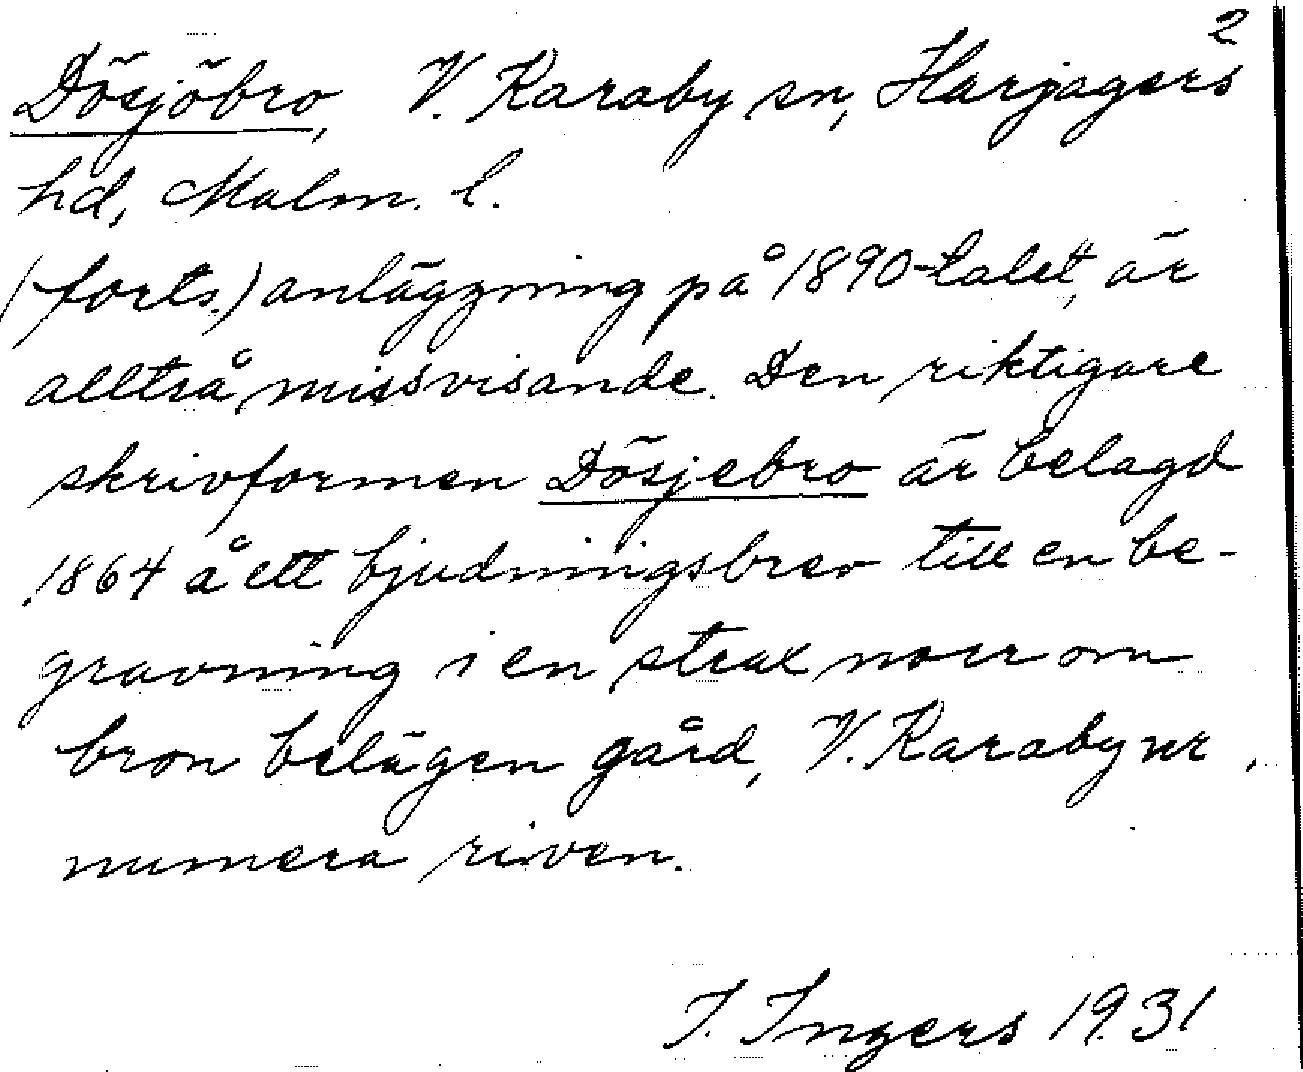 2
Dösjöbro, V. Karaby sn, Harjagers
hd, Malm. l.
(forts.) anläggning på 1890-talet, är
alltså missvisande. Den riktigare
skrivformen Dösjebro är belagd
1864 å ett bjudningsbrev till en be-
gravning i en strax norr om
bron belägen gård, V. Karaby nr ,
numera riven.
I. Ingers 1931